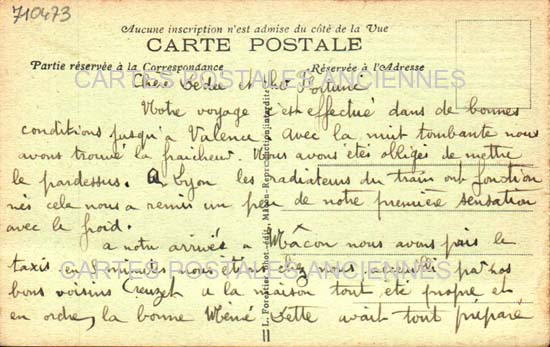 710473
Aucune inscription n'est admise du côté de la Vue
CARTE POSTALE
Partie réservée à la Correspondance
Réservée à l'Adresse
CARTES POSTALES ANCIENNES
Chère Dédée et cher Fortuné
Notre voyage s'est effectué dans de bonnes
conditions jusqu'à Valence avec la nuit tombante nous
avons trouvé la fraicheur. Nous avons étés obligés de mettre
le pardessus. a Lyon les radiateurs du train ont fonction
nés cela nous a remis un peu de notre première sensation
avec le froid.
a notre arrivés a Mâcon nous avons pris le
taxis en nous accueilli par nos
CARTES POSTALES ANCIENNES
bons voisins Creuzet a la maison tout été propre et
en ordre, la bonne Mémé avait tout préparé
L. Mâcon - Reproduction interdite